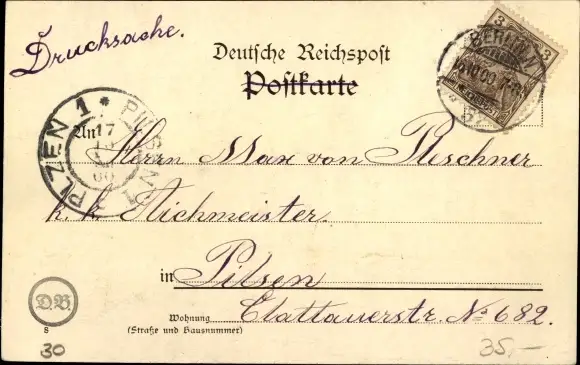 Drucksache.
Deutsche Reichspost
Postkarte
3 3
BERLIN
PLZEN 1 * PILSEN 1
17
An
Herrn Max von Peschner
k. k. Aichmeister.
in Pilsen
Wohnung Clattauerstr. № 682.
(Straße und Hausnummer)
D.B.
8
30
35,-